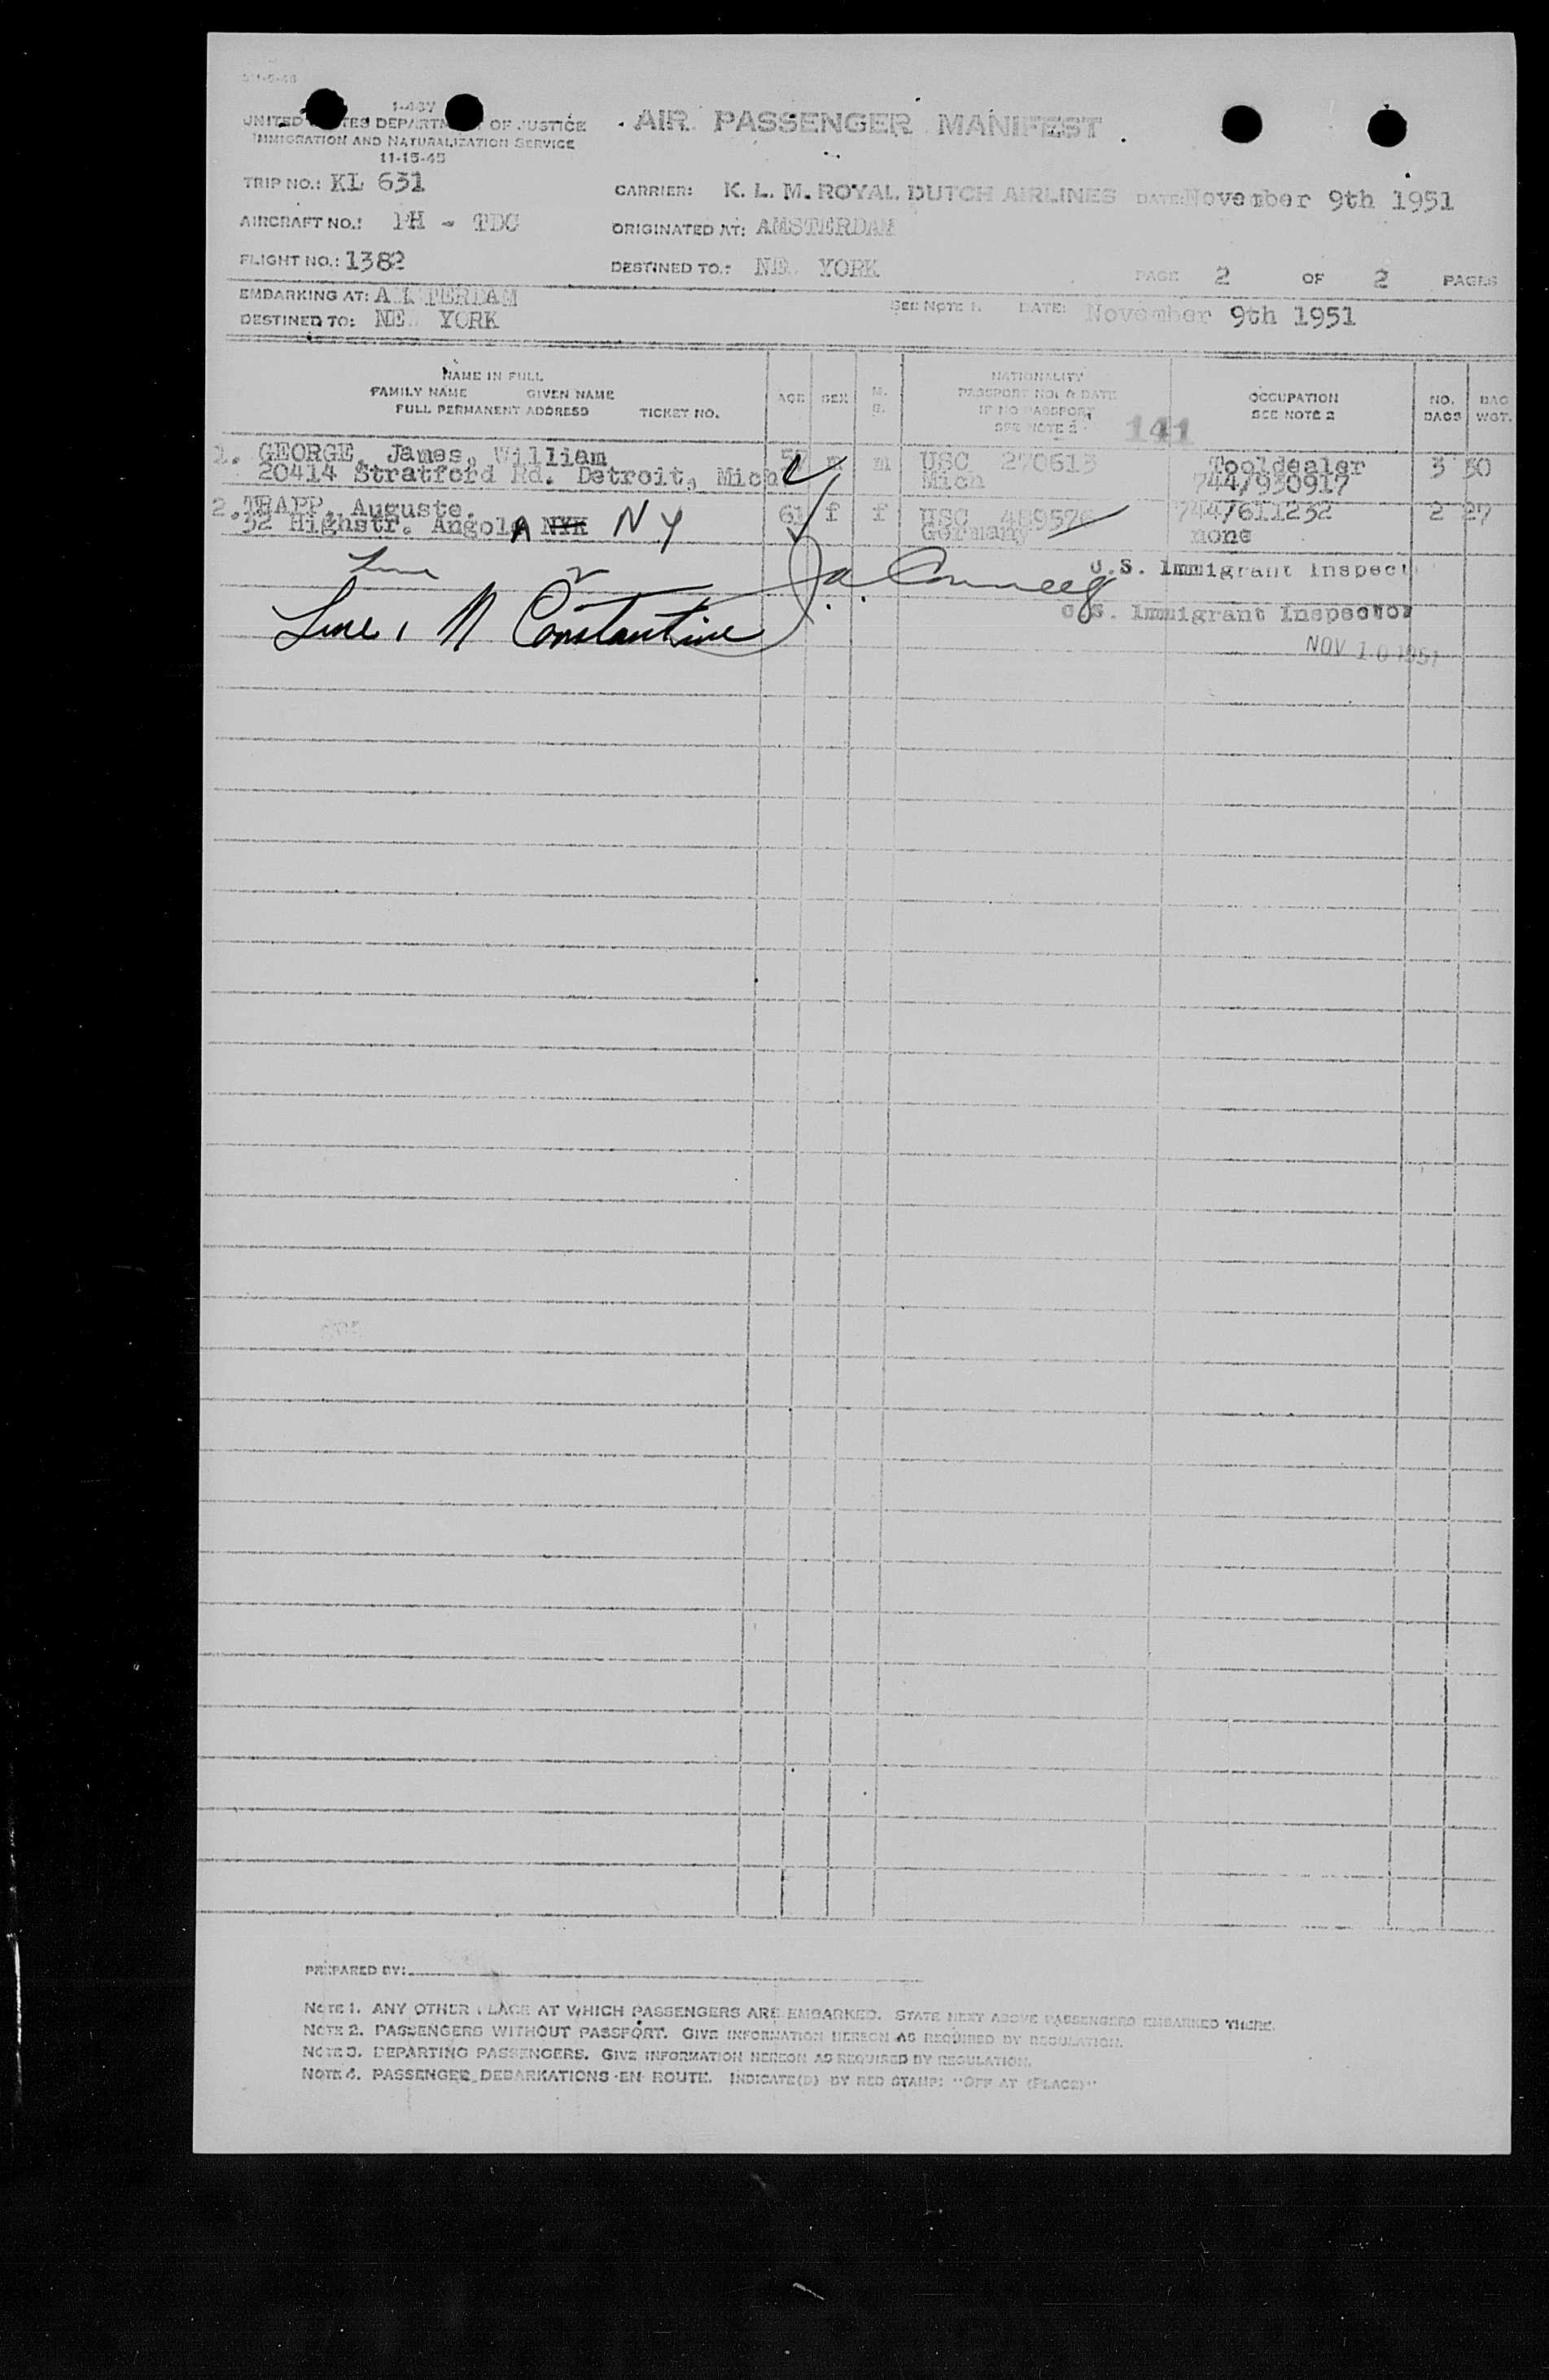 1-487
UNITED STATES DEPARTMENT OF JUSTICE
IMMIGRATION AND NATURALIZATION SERVICE
11-15-45
AIR PASSENGER MANIFEST
TRIP NO.: KL 631
CARRIER: K. L. M. ROYAL DUTCH AIRLINES DATE: November 9th 1951
AIRCRAFT NO.: PH - TDC
ORIGINATED AT: AMSTERDAM
FLIGHT NO.: 1382
DESTINED TO.: NE YORK
PAGE 2 OF 2 PAGES
EMBARKING AT: AMSTERDAM
SEE NOTE 1. DATE: November 9th 1951
DESTINED TO: NE YORK
NAME IN FULL
FAMILY NAME GIVEN NAME
FULL PERMANENT ADDRESS TICKET NO.
AGE SEX M. S.
NATIONALITY
PASSPORT NO. & DATE
IF NO PASSPORT
SEE NOTE 2
141
OCCUPATION
SEE NOTE 2
NO. BAGS
BAG WGT.
1. GEORGE, James, William 57 m m USC 270613 Tooldealer 3 30
20414 Stratford Rd. Detroit, Mich Mich 744/930917
2. TRAPP, Auguste. 61 f f USC 489576 744/611232 2 27
32 Highstr. Angola NYK NY Germany none
Line 2
U.S. Immigrant Inspect
Line 1 N Constantine
U.S. Immigrant Inspector
NOV 10 1951
PREPARED BY:
NOTE 1. ANY OTHER PLACE AT WHICH PASSENGERS ARE EMBARKED. STATE NEXT ABOVE PASSENGERS EMBARKED THERE.
NOTE 2. PASSENGERS WITHOUT PASSPORT. GIVE INFORMATION HEREON AS REQUIRED BY REGULATION.
NOTE 3. DEPARTING PASSENGERS. GIVE INFORMATION HEREON AS REQUIRED BY REGULATION.
NOTE 4. PASSENGER DEBARKATIONS EN ROUTE. INDICATE(D) BY RED STAMP: "OFF AT (PLACE)"